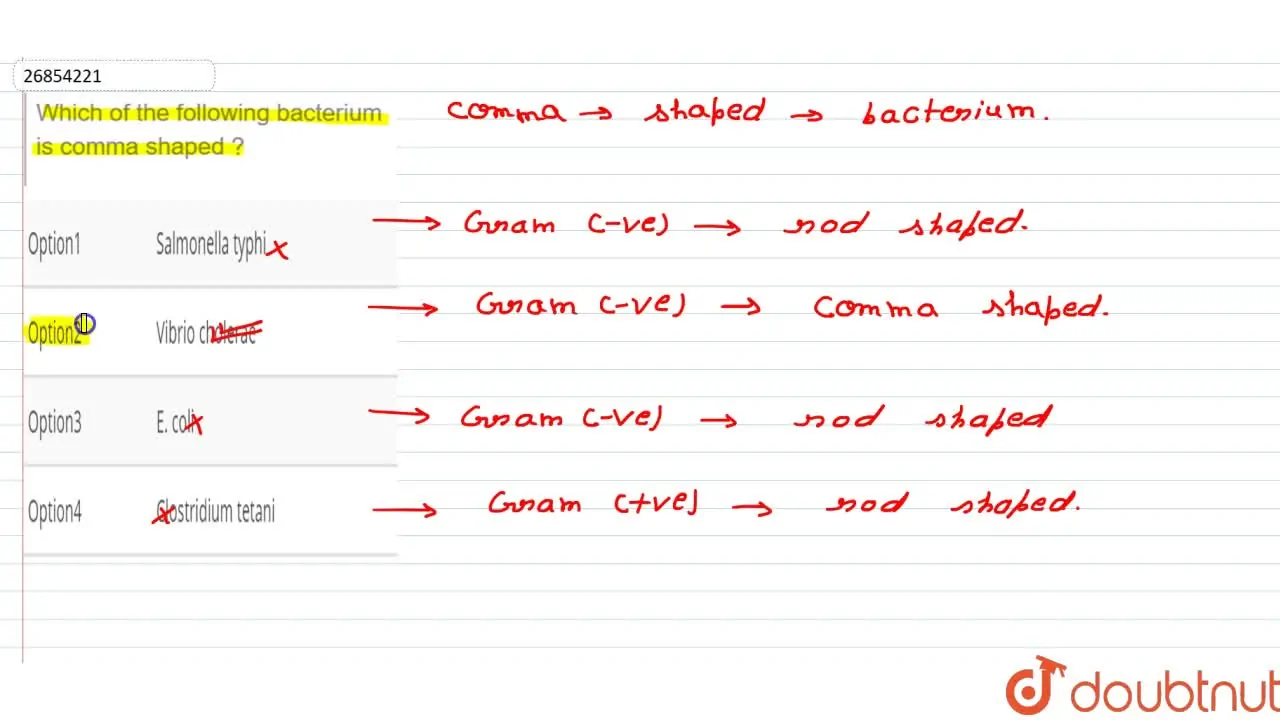 26854221
Which of the following bacterium
is comma shaped ?
comma → shaped → bacterium.
Option1 Salmonella typhi x → Gram (-ve) → rod shaped.
Option2 Vibrio cholerae → Gram (-ve) → comma shaped.
Option3 E. coli x → Gram (-ve) → rod shaped
Option4 Clostridium tetani → Gram (+ve) → rod shaped.
doubtnut